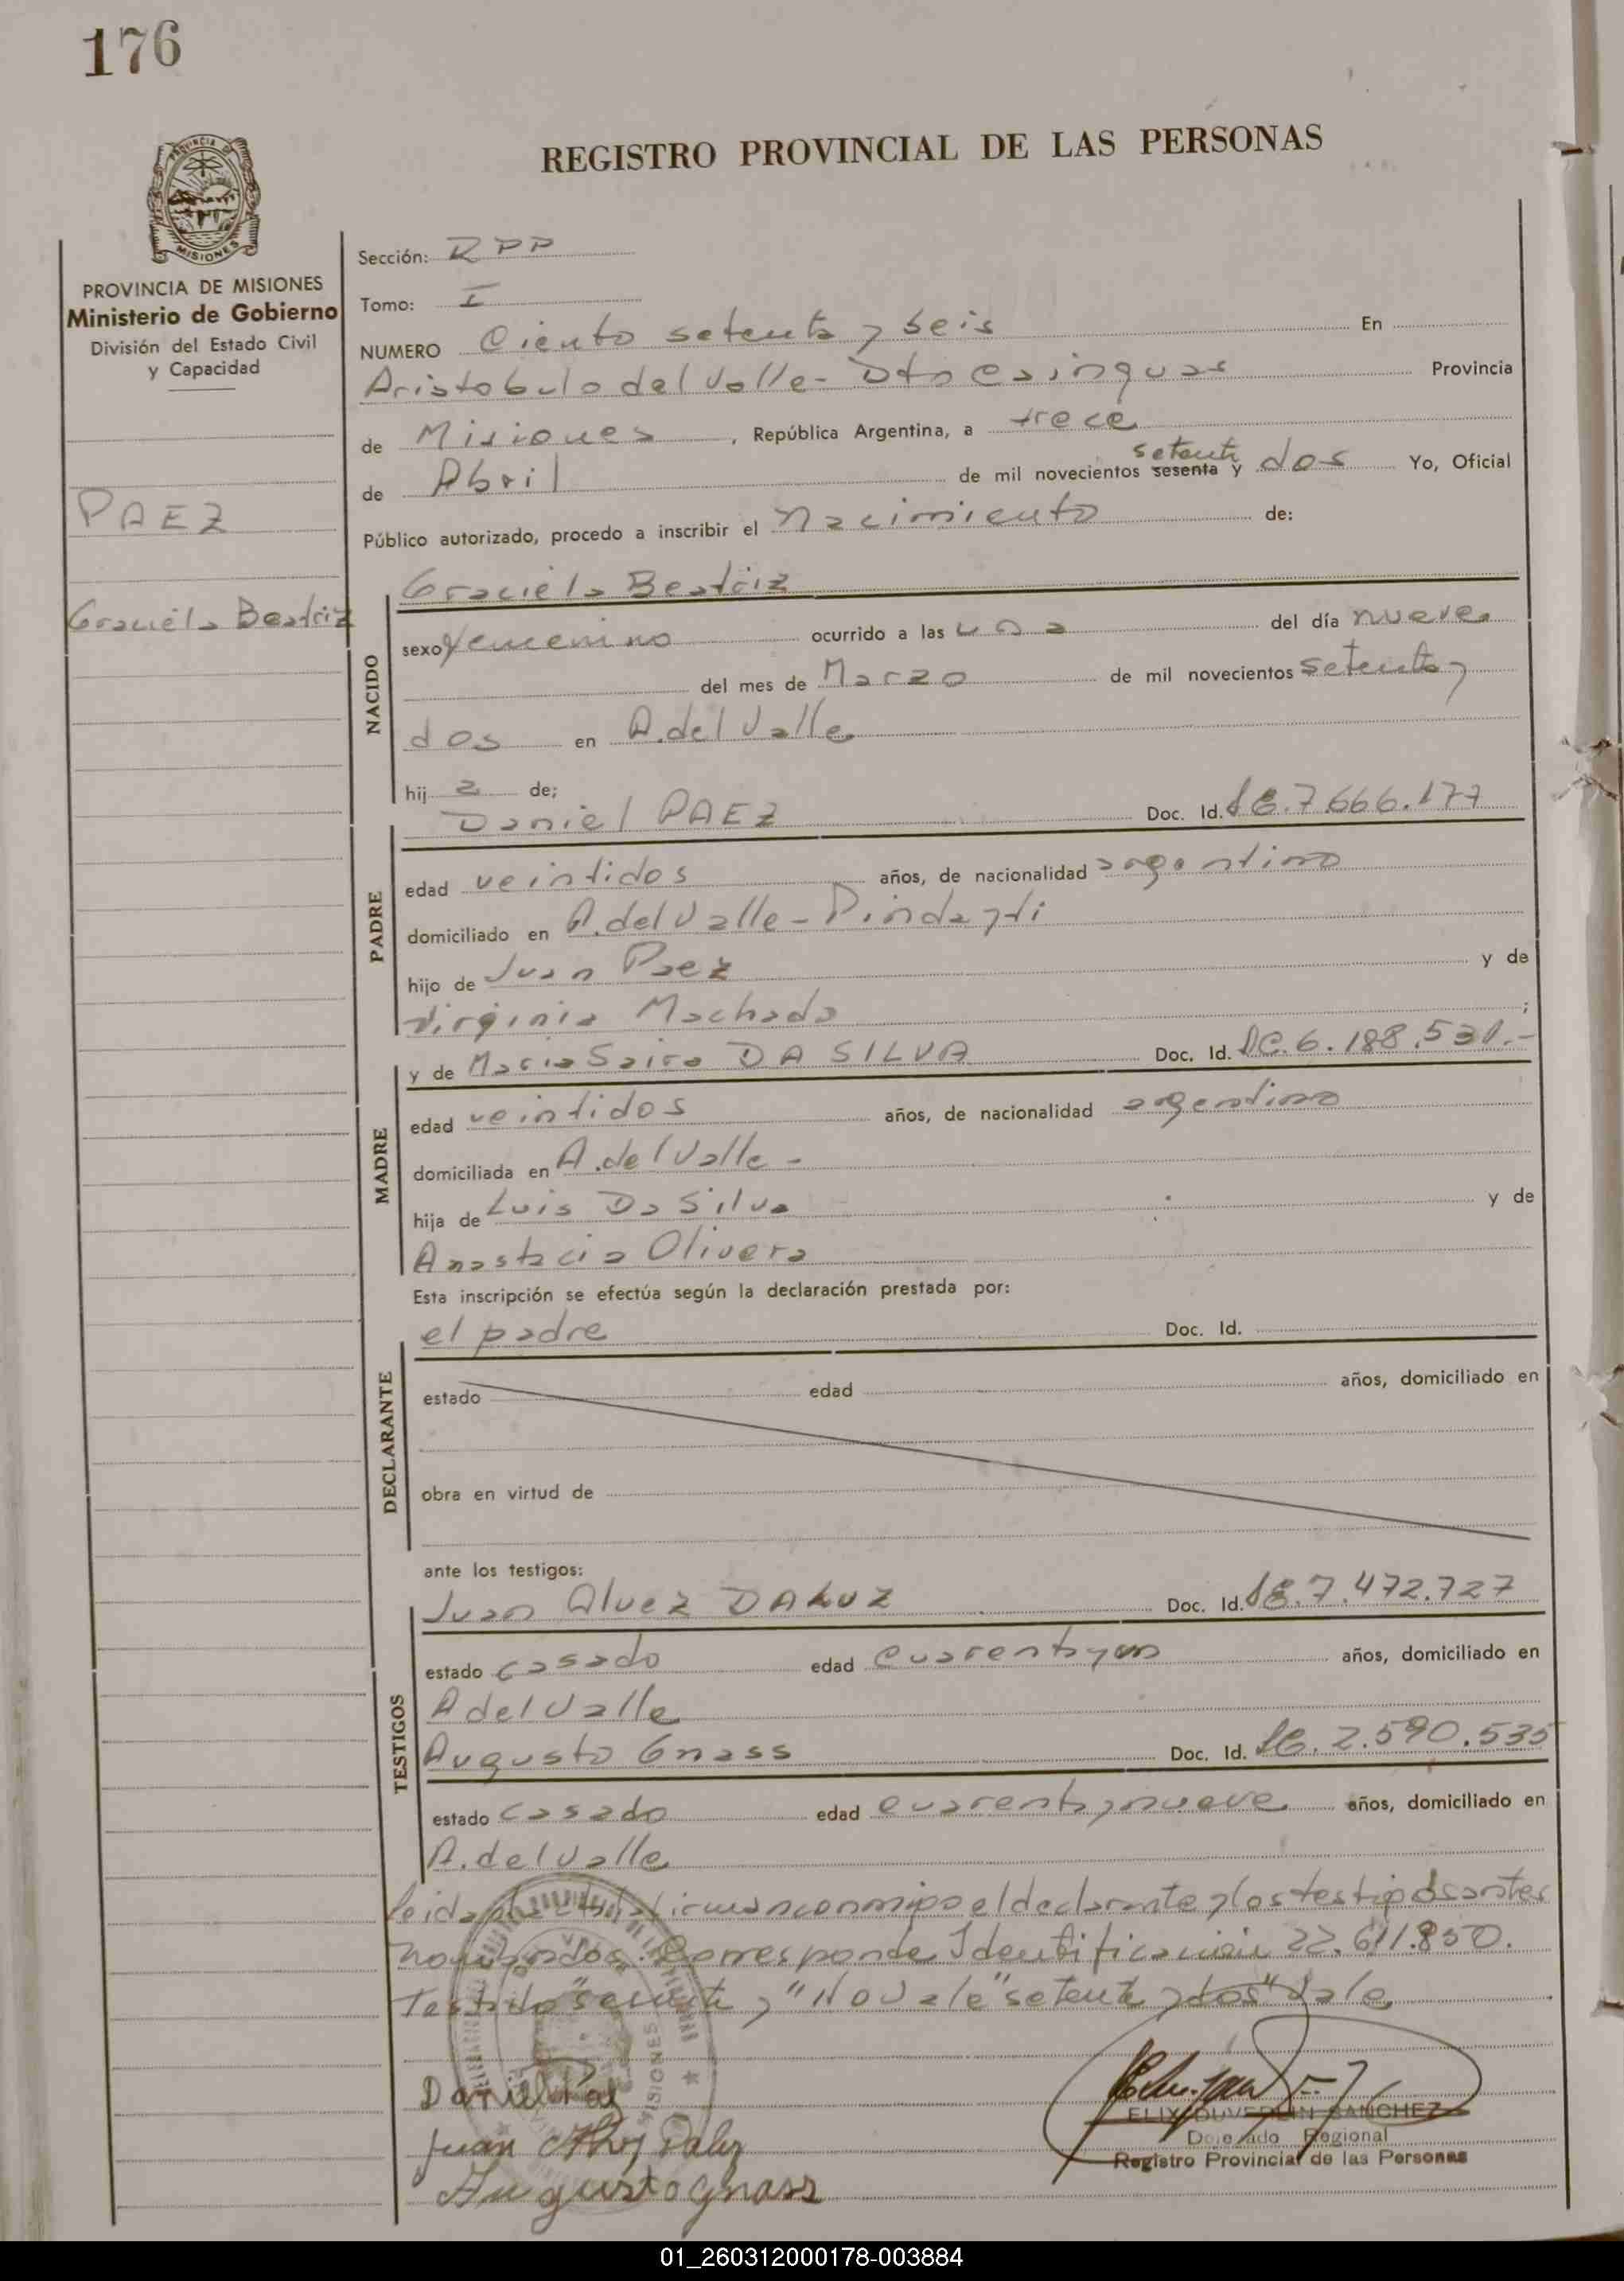 176
REGISTRO PROVINCIAL DE LAS PERSONAS
PROVINCIA DE MISIONES
Ministerio de Gobierno
División del Estado Civil
y Capacidad
PAEZ
Graciela Beatriz
Sección: RPP
Tomo: I
NUMERO Ciento setenta y seis En
Aristobulo del Valle - Dto Cainguas Provincia
de Misiones, República Argentina, a trece
setenta
de Abril de mil novecientos sesenta y dos Yo, Oficial
Público autorizado, procedo a inscribir el nacimiento de:
NACIDO
Graciela Beatriz
sexo femenino ocurrido a las una del día nueve
del mes de Marzo de mil novecientos setenta y
dos en A. del Valle
hij a de;
PADRE
Daniel PAEZ Doc. Id. 7.666.177
edad veintidos años, de nacionalidad argentino
domiciliado en A. del Valle - Pindayti
hijo de Juan Paez y de
Virginia Machado ;
MADRE
y de Maria DA SILVA Doc. Id. 6.188.531.-
edad veintidos años, de nacionalidad argentina
domiciliada en A. del Valle -
hija de Luis Da Silva y de
Anastacia Olivera
Esta inscripción se efectúa según la declaración prestada por:
DECLARANTE
el padre Doc. Id.
estado edad años, domiciliado en
obra en virtud de
ante los testigos:
TESTIGOS
Juan Alvez DALUZ Doc. Id. 7.472.727
estado casado edad cuarenta y un años, domiciliado en
A del Valle
Augusto Gnass Doc. Id. 2.590.535
estado casado edad cuarenta y nueve años, domiciliado en
A. del Valle
leida el acta firman conmigo el declarante y los testigos antes
nombrados. Corresponde Identificación 22.611.850.
Testado "sesenta y" No vale "setenta y dos" Vale
MISIONES
Daniel Paez
Juan Alvez Daluz
Augusto Gnass
FELIX DUVERLIN SANCHEZ
Delegado Regional
Registro Provincial de las Personas
01_260312000178-003884